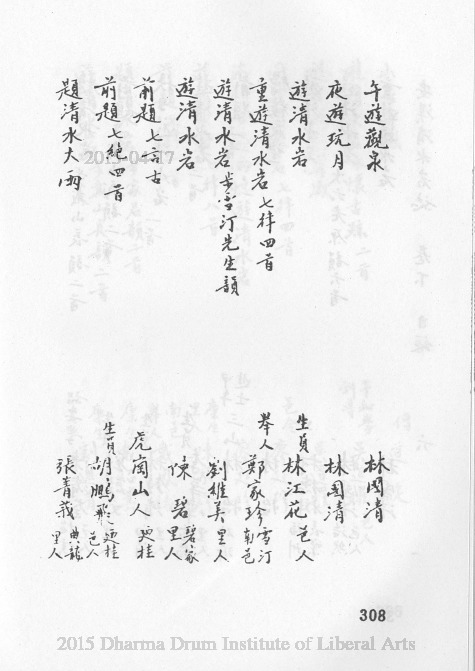 午遊觀泉 林國清
夜遊玩月 林國清
遊清水岩 生員 林江花 邑人
重遊清水岩七律四首 舉人 鄭家珍 雪汀 南邑
遊清水岩步雪汀先生韻 劉維美 里人
遊清水岩 陳碧 碧篆 里人
前題七言古 虎崗山人 廷桂
前題七絕四首 生員 胡鵬飛 廷桂 邑人
題清水大海 張菁莪 典龍 里人
308
2015-04-17
2015 Dharma Drum Institute of Liberal Arts